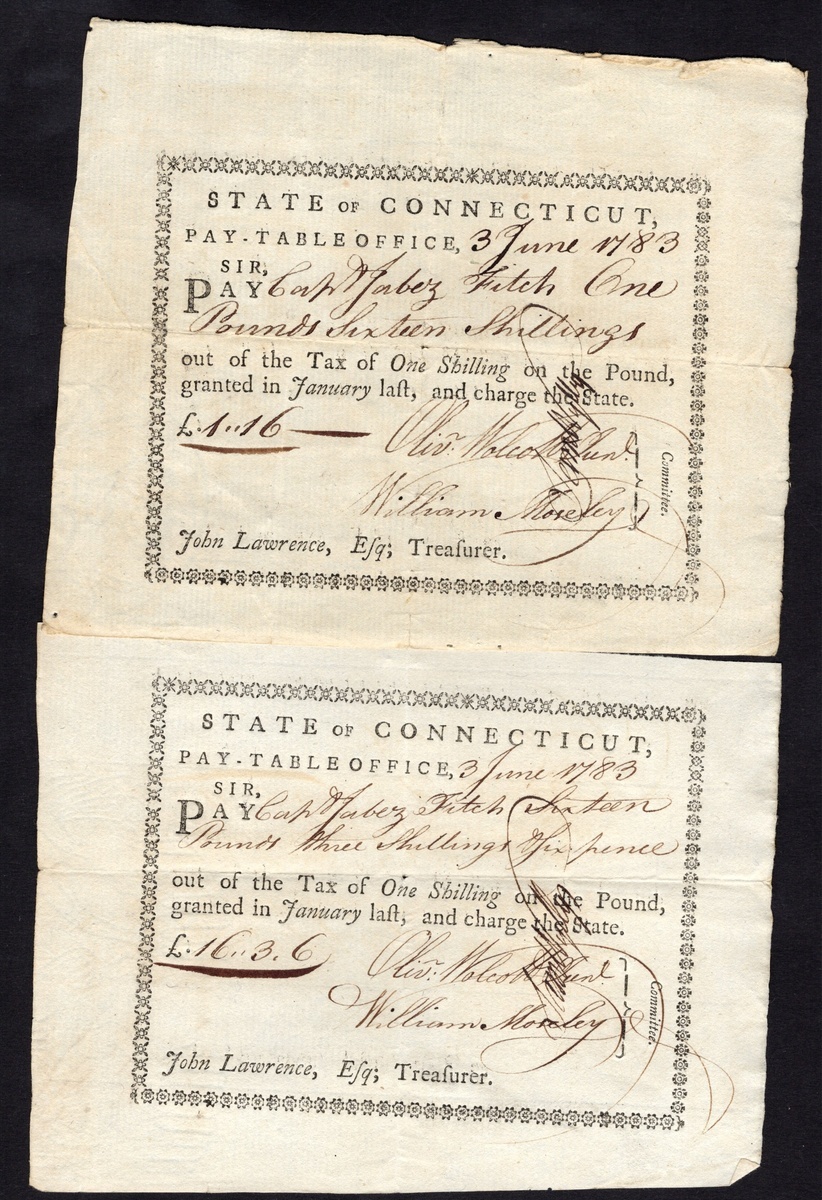 STATE OF CONNECTICUT,
PAY-TABLE OFFICE, 3 June 1783
SIR,
PAY Capt Jabez Fitch One
Pounds Sixteen Shillings
out of the Tax of One Shilling on the Pound,
granted in January laſt, and charge the State.
£.1..16
Olivr. Wolcott Junr.
William Moseley
Committee.
John Lawrence, Eſq; Treaſurer.
STATE OF CONNECTICUT,
PAY-TABLE OFFICE, 3 June 1783
SIR,
PAY Capt Jabez Fitch Sixteen
Pounds three Shillings & Six pence
out of the Tax of One Shilling on the Pound,
granted in January laſt, and charge the State.
£.16..3.6
Olivr. Wolcott Junr.
William Moseley
Committee.
John Lawrence, Eſq; Treaſurer.